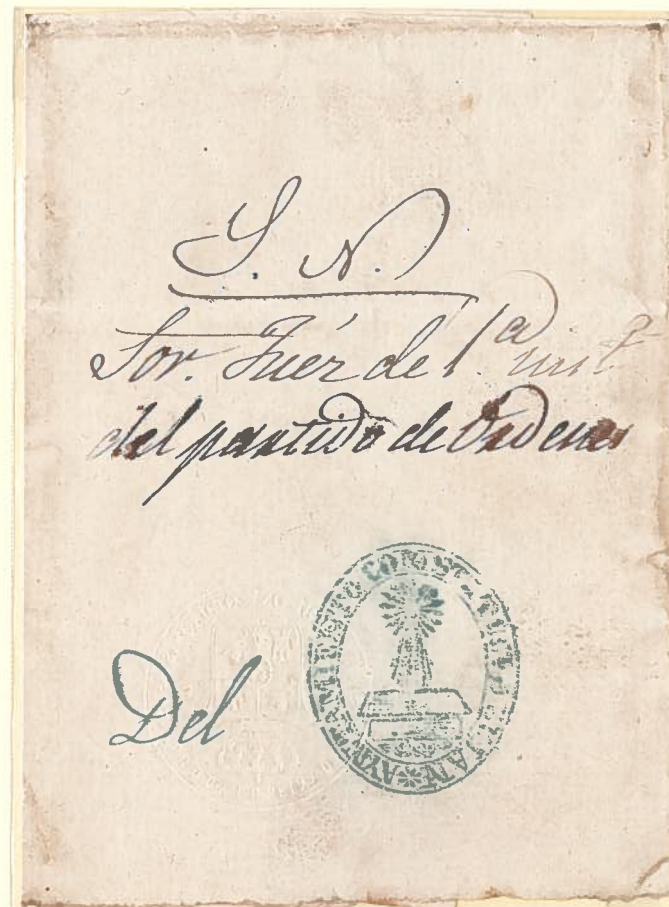 S. N.
Sor. Juéz de 1.ª inst.ª
del partido de Ordenes
Del
AYUNTAMIENTO CONST